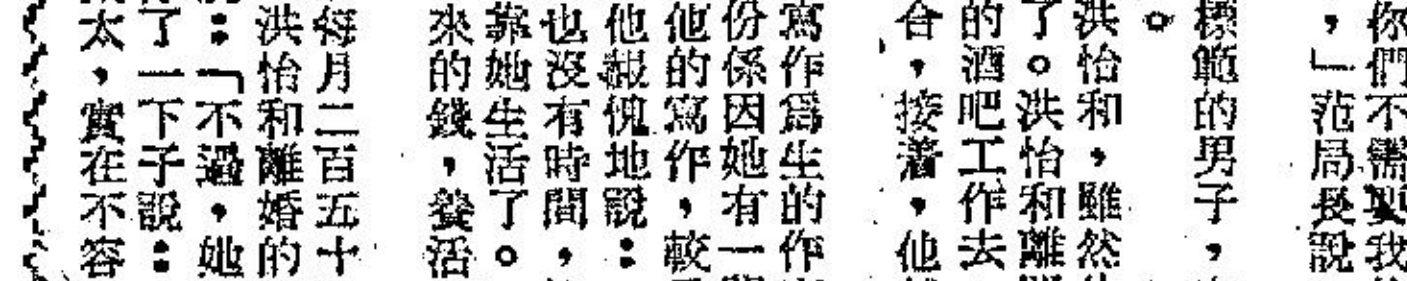 你們不需要我
，」范局長說
標範的男子，
。
洪怡和，雖然
了。洪怡和離
的酒吧工作去
合，接着，他
寫作爲生的作
份係因她有一
他的寫作，較
他靦愧地說：
也沒有時間，
靠她生活了。
來的錢，養活
每月二百五十
洪怡和離婚的
：「不過，她
了一下子說：
太，實在不容